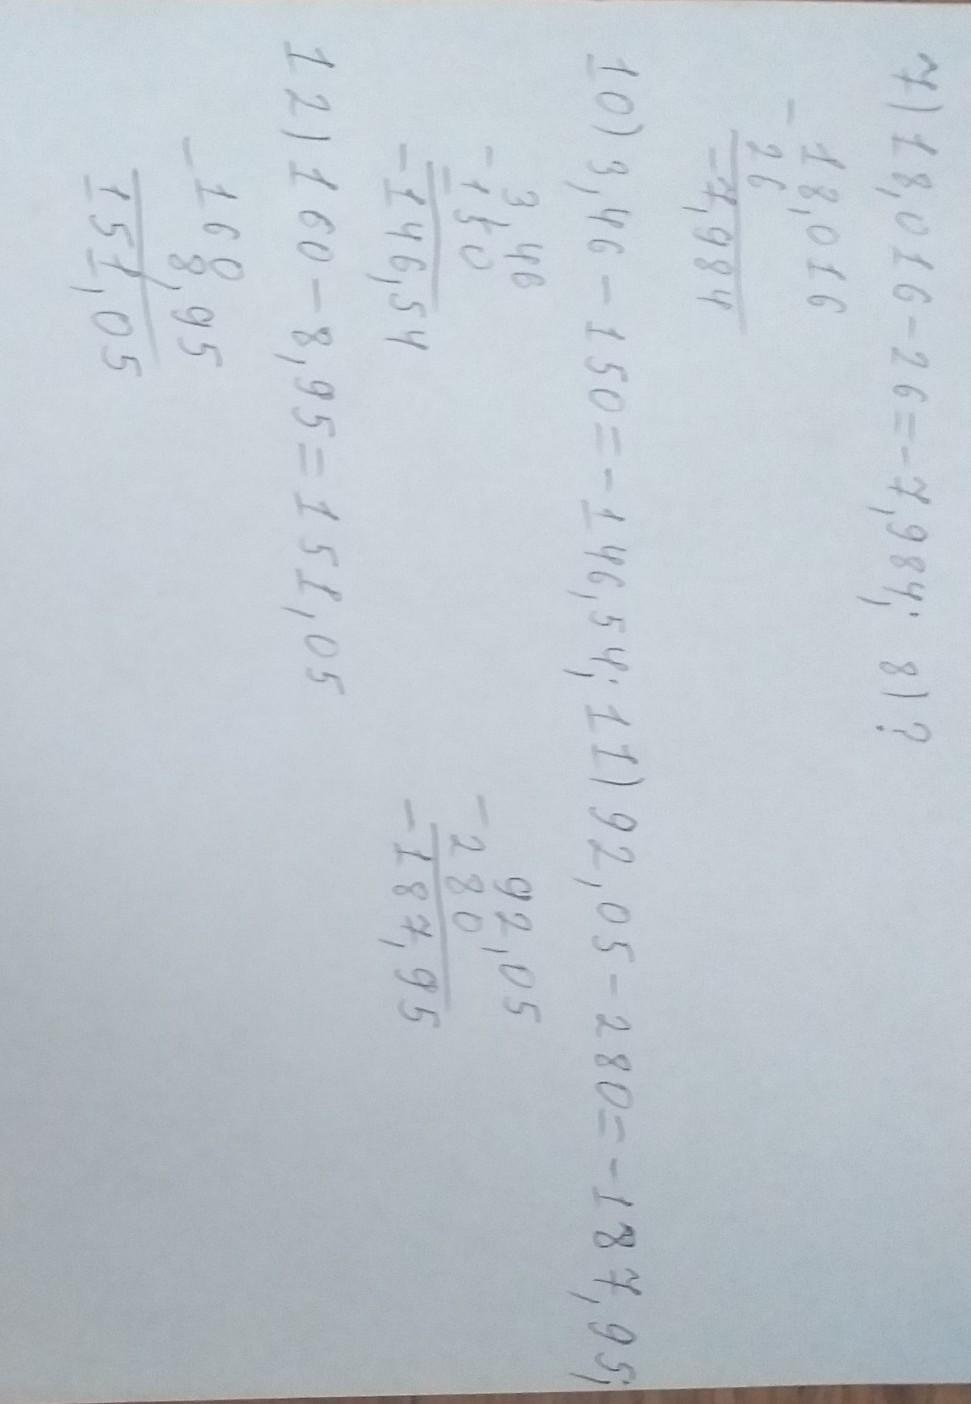 7) 18,016-26=-7,984; 8) ?
- 18,016
26
-7,984
10) 3,46-150=-146,54; 11) 92,05-280=-187,95;
- 3,46
150
-146,54
- 92,05
280
-187,95
12) 160-8,95=151,05
- 160
8,95
151,05